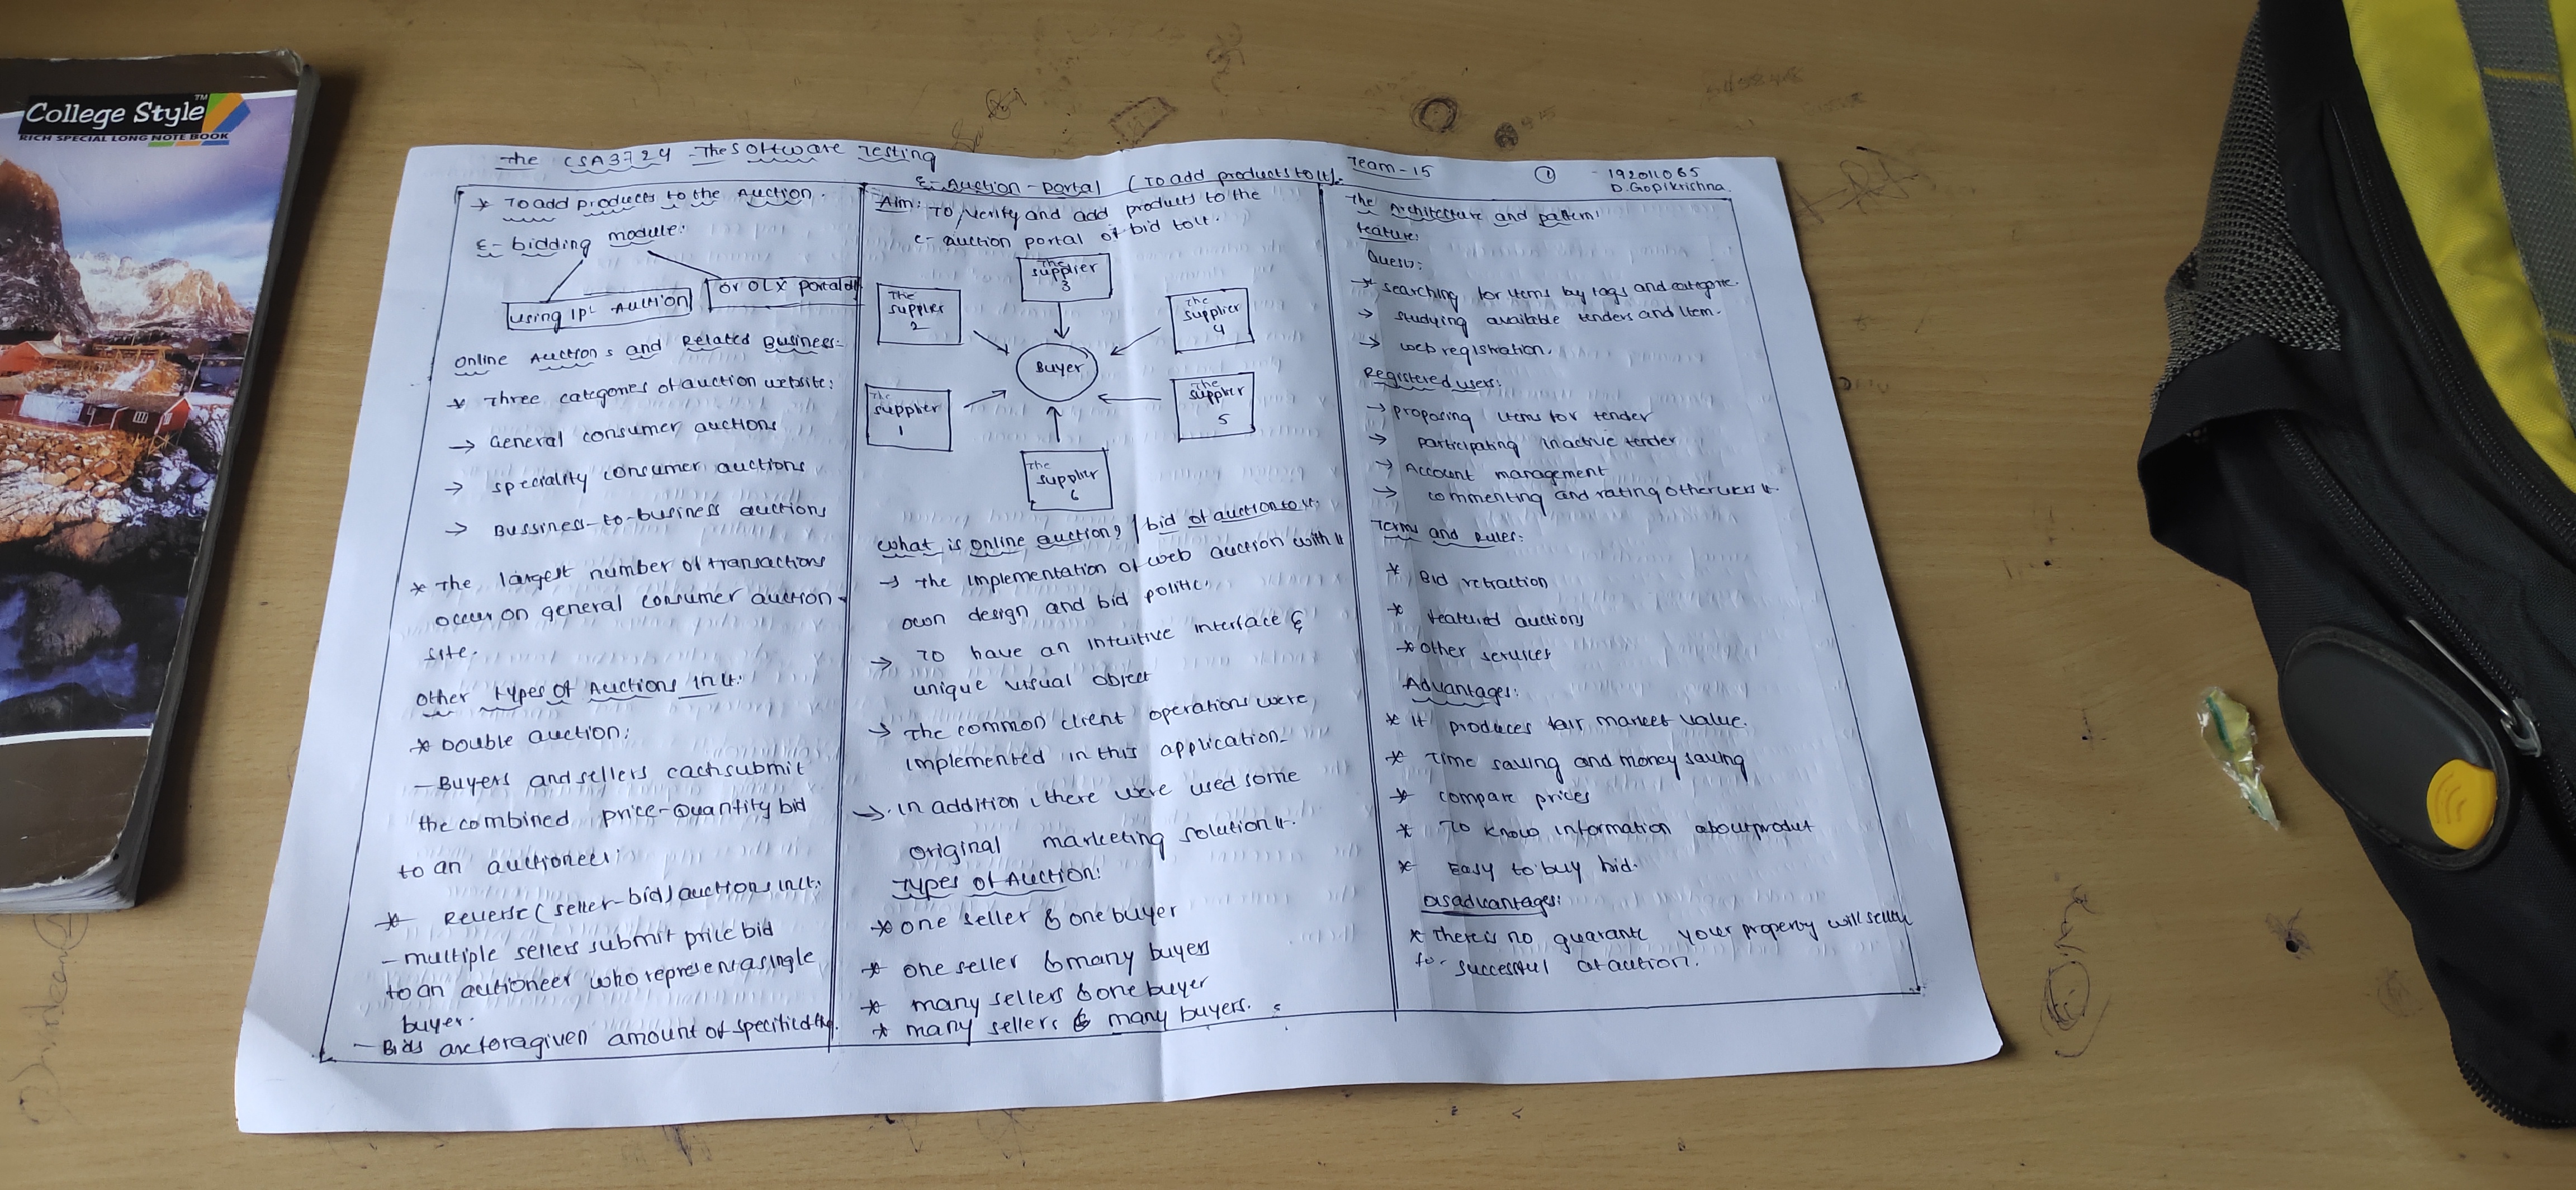 College Style™
RICH SPECIAL LONG NOTE BOOK
The CSA3724 - The Software Testing
Team-15
①
192011065
D. Gopi Krishna
* To add products to the Auction.
E-bidding module:
using IP Auction
or OLX portal
online Auctions and Related Business:-
* Three categories of auction website:
→ General consumer auctions
→ speciality consumer auctions
→ Bussiness-to-business auctions
* The largest number of transactions
occur on general consumer auction
site.
other types of Auctions
* Double auction:
- Buyers and sellers each submit
the combined price-Quantity bid
to an auctioneer
* Reverse (seller-bid) auctions
- multiple sellers submit price bid
to an auctioneer who represents single
buyer.
- Bids are for a given amount of specified
E-Auction-portal (To add products to
Aim: To verify and add product to the
e-auction portal of bid
The supplier 1
The supplier 2
The supplier 3
The supplier 4
The supplier 5
The supplier 6
Buyer
what is online auction? / bid of auction
→ the implementation of web auction with
own design and bid
→ To have an intuitive interface &
unique visual object
→ The common client operations were
implemented in this application.
→ in addition, there were used some
original marketing solution
Types of Auction:
* one seller & one buyer
* one seller & many buyers
* many sellers & one buyer
* many sellers & many buyers.
The Architecture and pattern
feature:
* searching for items by tags and
→ studying available tenders and item.
→ web registration.
Registered users:
→ proposing items for tender
→ participating in active tender
→ Account management
→ commenting and rating other users
Terms and Rules:
* Bid retraction
* featured auctions
* other services
Advantages:
* It produces fair market value.
* Time saving and money saving
* compare prices
* To know information about product
* Easy to buy bid.
Disadvantages:
* there is no guarante your property will
for successful at auction.